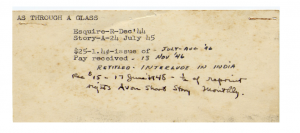 AS THROUGH A GLASS
Esquire-R-Dec '44
Story-A-24 July 45
$25-1. -issue of - JULY-AUG '46
Pay received - 13 NOV '46
RETITLED - INTERLUDE IN INDIA
$15 - 17 June 1948 - ½ of reprint
rights Avon Short Story Monthly.